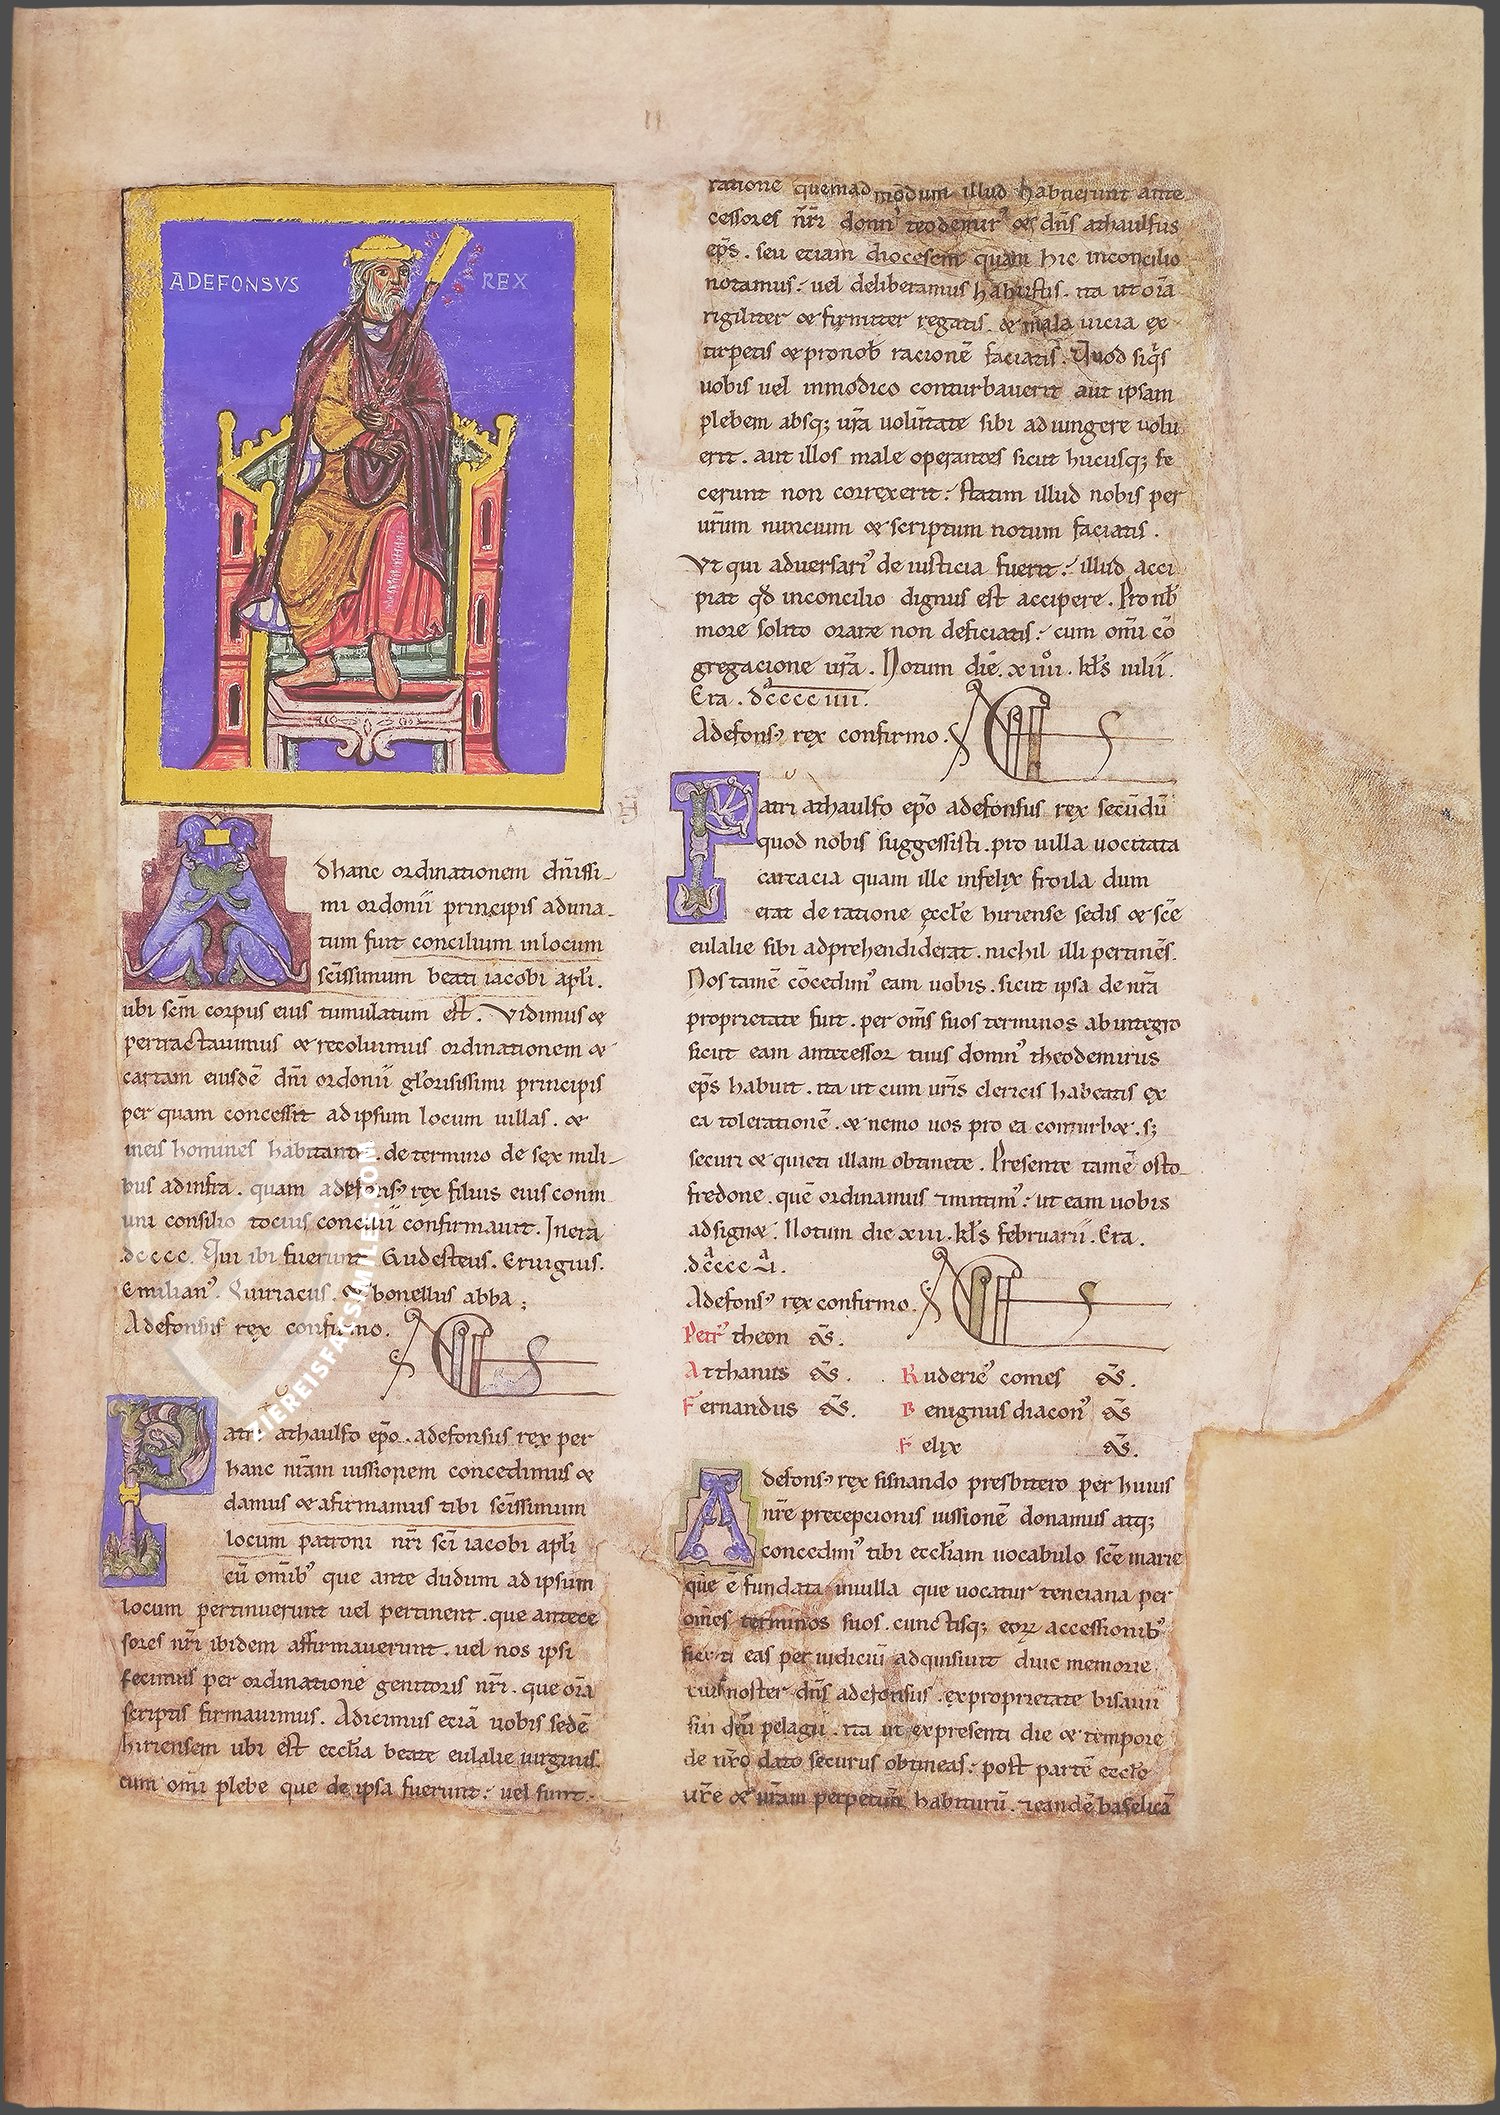 II
ADEFONSVS REX
Adhanc ordinationem dñissi-
mi ordonii principis aduna-
tum fuit concilium inlocum
scissimum beati iacobi apli.
ubi scm corpus eius tumulatum est. Vidimus &
pertractauimus & recoluimus ordinationem &
cartam eiusdē dñi ordonii glorisissimi principis
per quam concessit adipsum locum uillas. &
ineis homines habitantes. de termino de sex mili-
bus adinfra. quam adefonsꝰ rex filius eius conm
uni consilio tocius concilii confirmauit. Inera
dcccc. Qui ibi fuerunt Gudesteus. Eruigius.
Emilianꝰ. Quiriacus. & bonellus abba;
Adefonsus rex confirmo.
Patri athaulfo epo. adefonsus rex per
hanc nr̄am iussionem concedimus &
damus & afirmamus tibi scissimum
locum patroni nr̄i sci iacobi apli
cū omibꝰ que ante dudum adipsum
locum pertinuerunt uel pertinent. que antece
sores nr̄i ibidem affirmauerunt. uel nos ipsi
fecimus per ordinationē genitoris nr̄i. que oīa
scriptis firmauimus. Adicimus etiā uobis sedē
hiriensem ubi est ecclia beate eulalie uirginis.
cum omi plebe que de ipsa fuerunt: uel sunt.
ratione quemadmodum illud habuerunt ante
cessores nr̄i domnꝰ teodemirꝰ & dñs athaulfus
eps. seu etiam diocesem quam hic inconcilio
notamus: uel deliberamus habustis. ita ut oīa
rigiliter & firmiter regatis. & mala uicia ex
tirpetis & pronob racionē faciatis. Quod siqs
uobis uel inmodico conturbauerit aut ipsam
plebem absq; ur̄a uolūtate sibi adiungere uolu
erit. aut illos male operantes sicut hucusq; fe
cerunt non correxerit: statim illud nobis per
ur̄um nuncium & scriptum notum faciatis.
Vt qui aduersariꝰ de iusticia fuerit: illud acci
piat qd inconcilio dignus est accipere. Pro nb
more solito orare non deficiatis: cum omi cō
gregacione ur̄a. Notum diē. xiiii. kls iulii.
Era. dcccciiii.
Adefonsꝰ rex confirmo.
Patri athaulfo epo adefonsus rex secūdū
quod nobis suggessisti. pro uilla uocitata
cartacia quam ille infelix froila dum
erat de ratione eccle hiriense sedis & sce
eulalie sibi adprehendiderat. nichil illi pertinēs.
Nos tamē cōcedimꝰ eam uobis. sicut ipsa de nr̄a
proprietate fuit. per oms suos terminos abintegro
sicut eam antecessor tuus domnꝰ theodemirus
eps habuit. ita ut cum ur̄is clericis habeatis ex
ea tolerationē. & nemo uos pro ea conturb&. s;
securi & quieti illam obtinete. Presente tamē osto
fredone. quē ordinamus inmitimꝰ: ut eam uobis
adsign&. Notum die xiii. kls februarii. Era.
dcccc
Adefonsꝰ rex confirmo.
Petrꝰ theon
Atthanus Ruderiꝰ comes
Fernandus Benignus diaconꝰ
Felix
Adefonsꝰ rex sisnando presbitero per huius
nr̄e precepcionis iussionē donamus atq;
concedimꝰ tibi eccliam uocabulo sce marie
que ē fundata inuilla que uocatur tenciana per
omes terminos suos. cunctisq; eorꝝ accessionibꝰ
sicuti eas per iudiciū adquisiuit diue memorie
noster dñs adefonsus. exproprietate bisauii
sui dni pelagii. ita ut expresenti die & tempore
de nr̄o dato securus obtineas: post partē eccle
ur̄e & ur̄am perpetim habiturū. eandē baselicā
ZIEREISFACSIMILES.COM